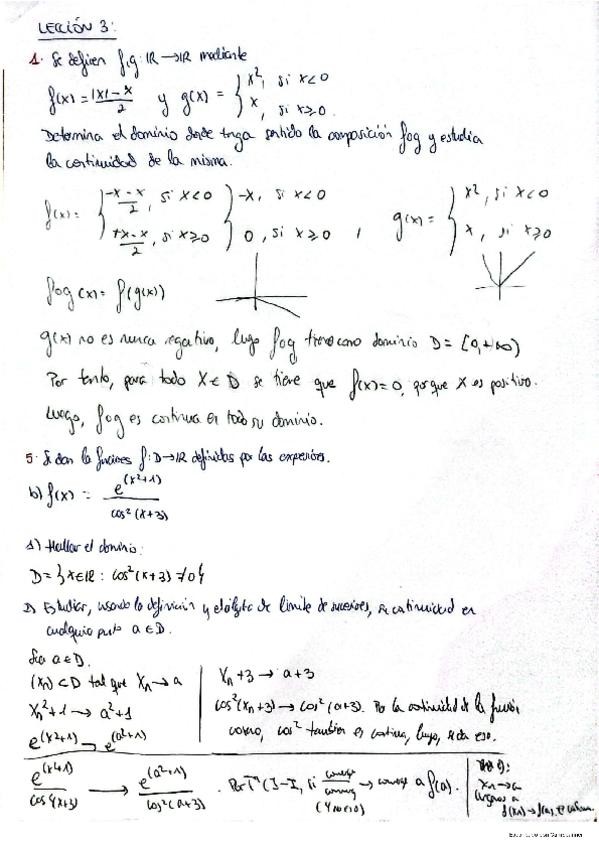 LECCIÓN 3:
1. Se definen f,g: IR → IR mediante
f(x) = |x| - x / 2 y g(x) = { x², si x<0
x, si x≥0.
Determina el dominio donde tenga sentido la composición fog y estudia
la continuidad de la misma.
f(x) = { -x-x / 2, si x<0 } -x, si x<0
+x-x / 2, si x≥0 } 0, si x≥0 , g(x) = { x², si x<0
x, si x≥0
fog(x) = f(g(x))
g(x) no es nunca negativo, luego fog tiene como dominio D = [0,+∞)
Por tanto, para todo x ∈ D se tiene que f(x)=0, porque x es positivo.
Luego, fog es continua en todo su dominio.
5. Se dan la funciones f: D → IR definidas por las expresiones.
b) f(x) = e^(x²+1) / cos²(x+3)
1) Hallar el dominio:
D = { x ∈ IR : cos²(x+3) ≠ 0 }
2) Estudiar, usando la definición y el álgebra de límite de sucesiones, su continuidad en
cualquier punto a ∈ D.
Sea a ∈ D.
(xn) ⊂ D tal que xn → a
xn²+1 → a²+1
e^(xn²+1) → e^(a²+1)
xn+3 → a+3
cos²(xn+3) → cos²(a+3). Por la continuidad de la función
coseno, cos² también es continua, luego, se da eso.
e^(x²+1) / cos²(x+3) → e^(a²+1) / cos²(a+3) . Por T^a (3-I, si converge / converge → converge a f(a).
(y no es 0)
xn → a
f(xn) → f(a), es continua.